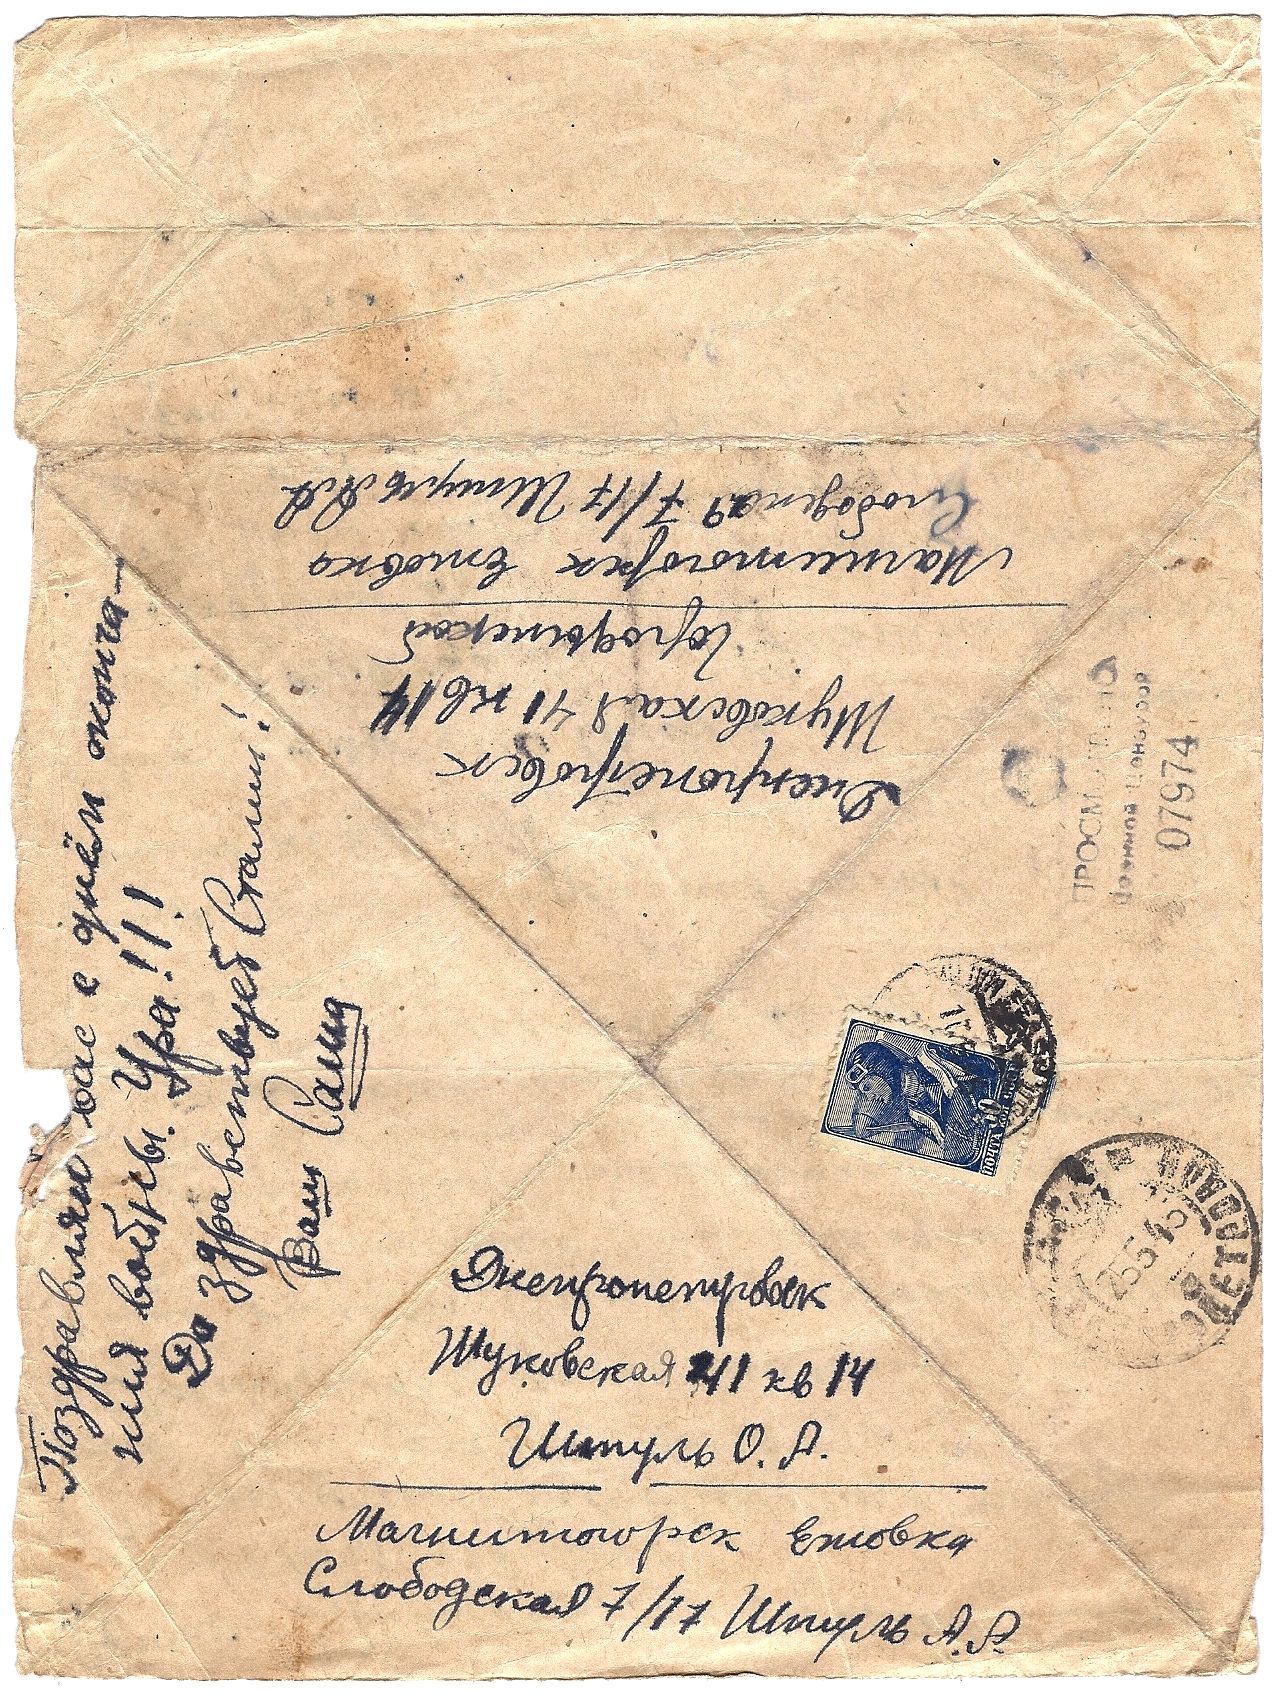 Поздравляю вас с днём оконча-
ния войны. Ура!!!
Да здравствует Сталин!
Ваш Саша
Днепропетровск
Шуковская 41 кв 14
Штуль О. А.
Магнитогорск Ежовка
Слободская 7/17 Штуль А. А.
Днепропетровск
Шуковская 41 кв 14
Городынской
Магнитогорск Ежовка
Слободская 7/17 Штуль А А
Военной Цензурой
07974
25 5 45
ПОЧТА СССР